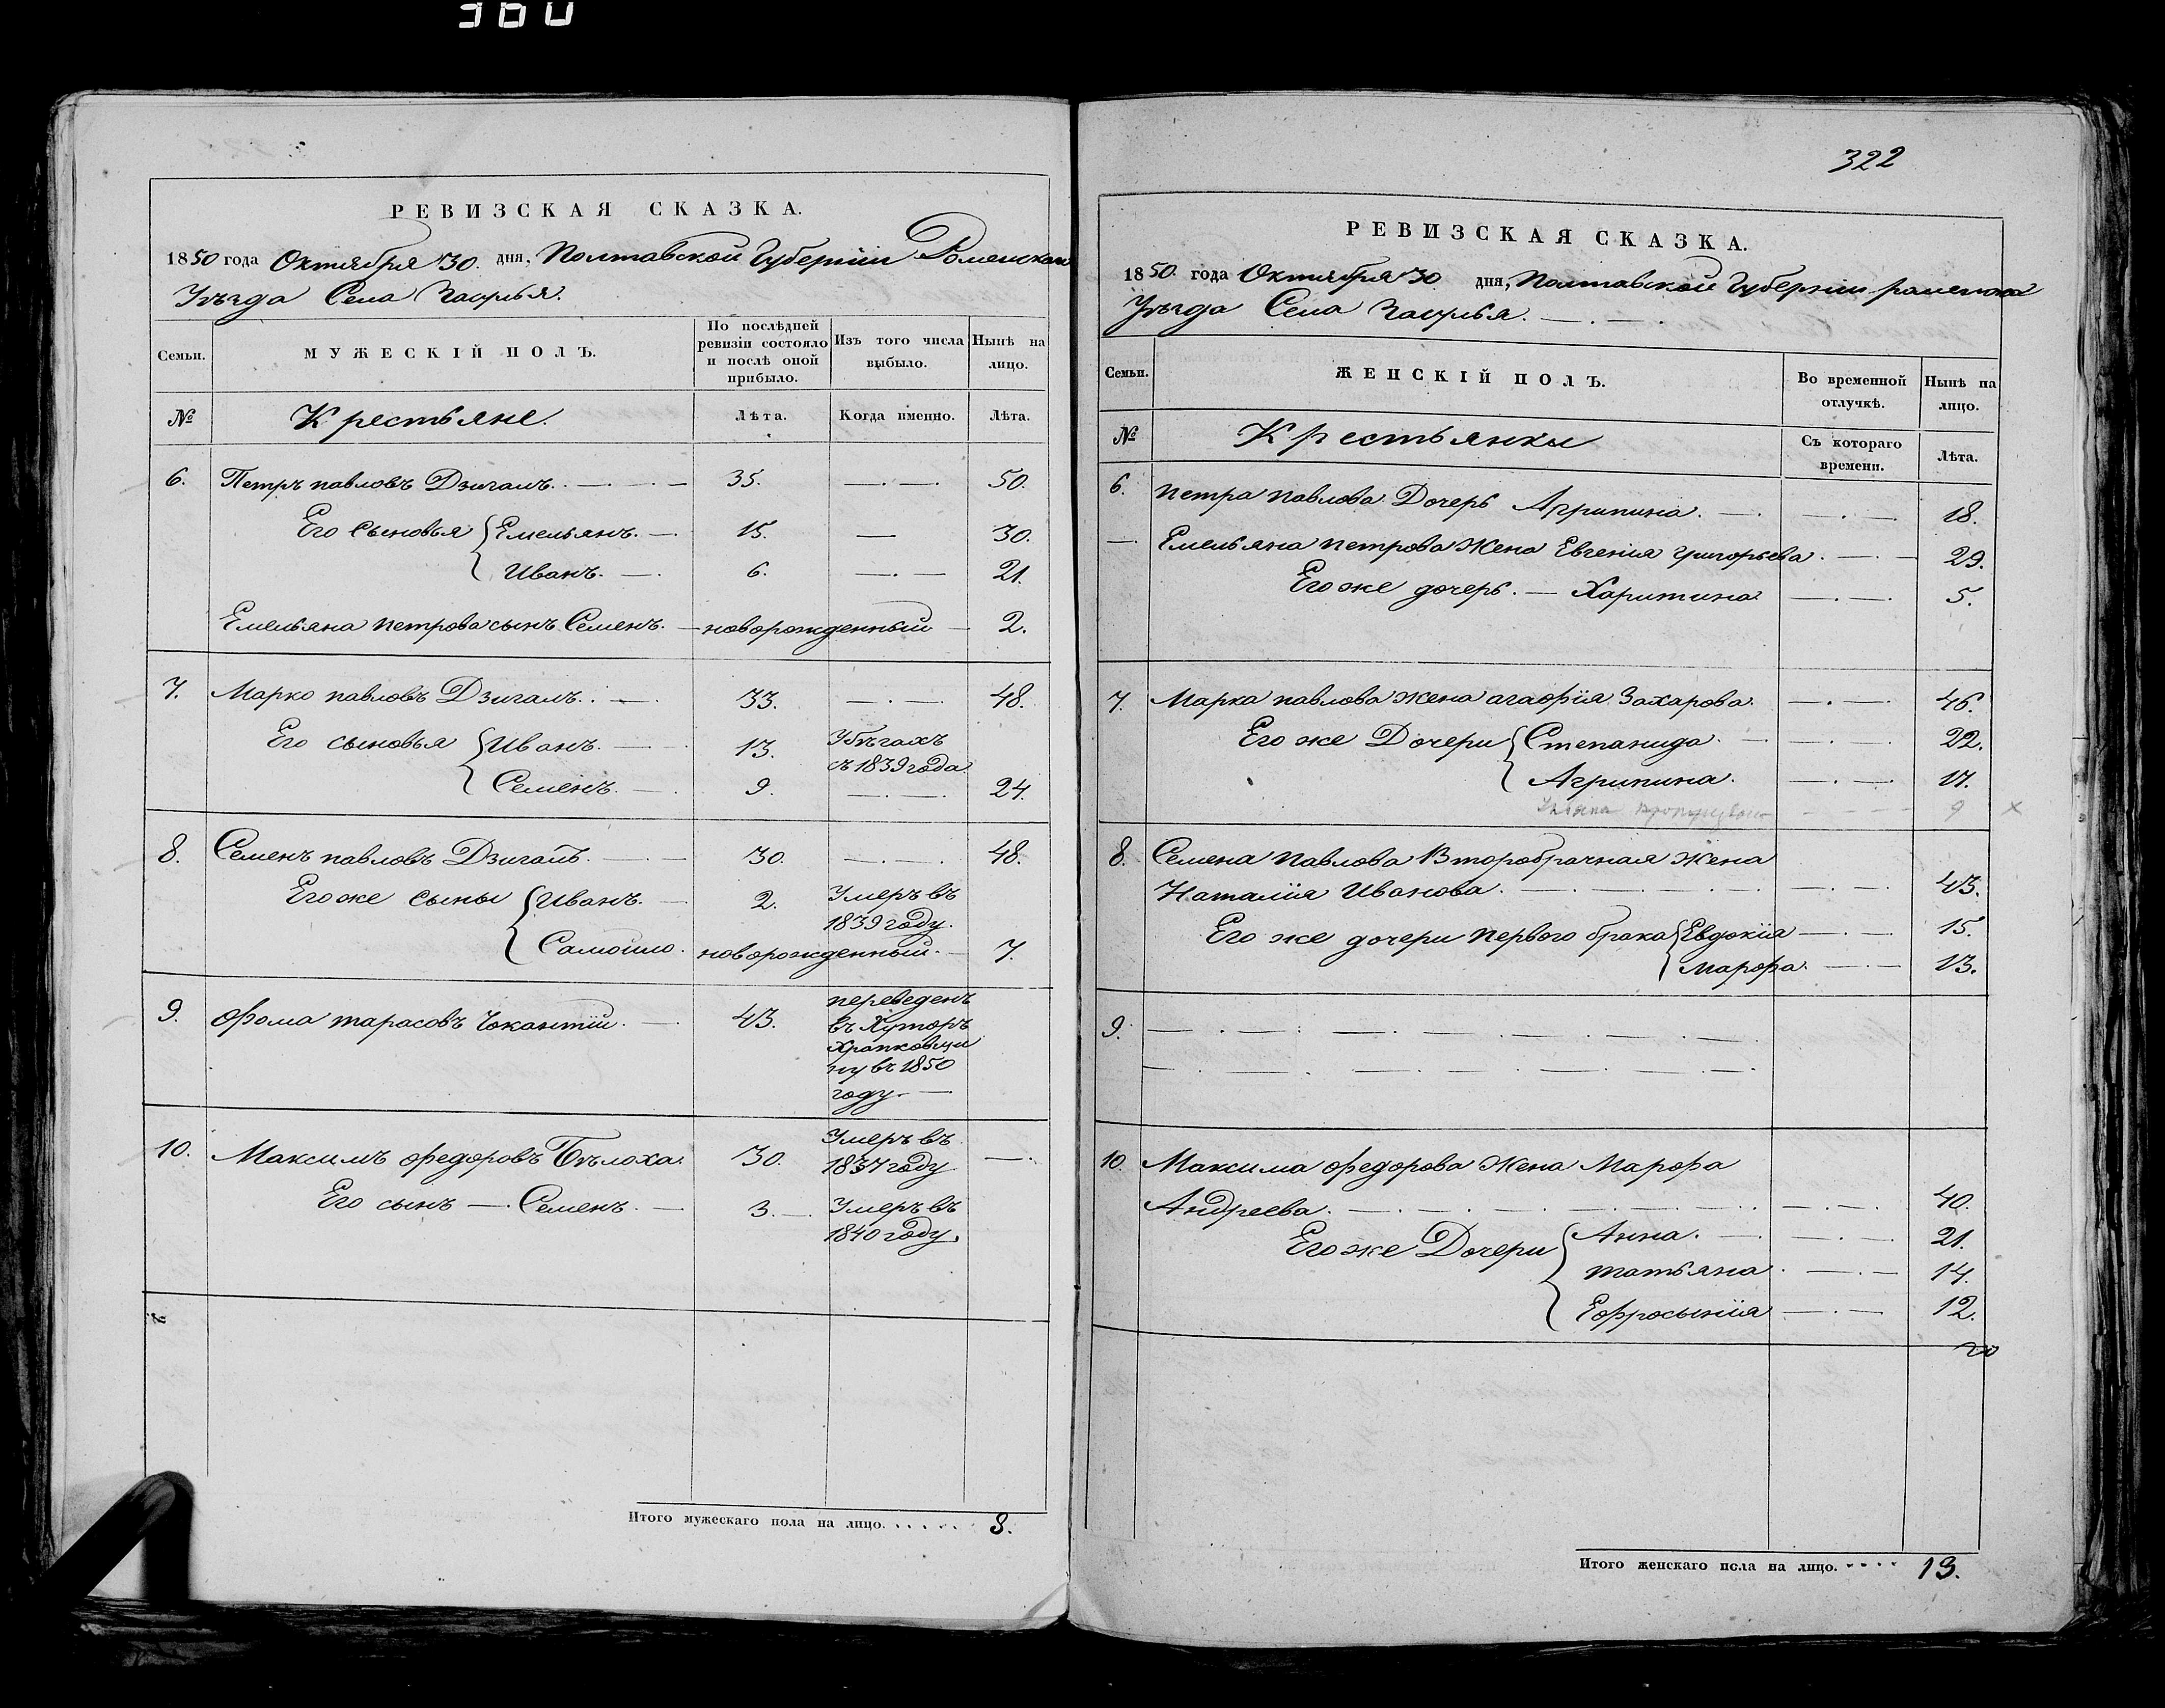 360
РЕВИЗСКАЯ СКАЗКА.
1850 года Октября 30. дня, Полтавской Губернiи Роменскаго
Уѣзда Села Засулья.
Семьи. МУЖЕСКІЙ ПОЛЪ. По послѣдней ревизіи состояло и послѣ оной прибыло. Изъ того числа выбыло. Нынѣ на лицо.
№ Крестьяне. Лѣта. Когда именно. Лѣта.
6. Петръ павловъ Дзигаль. 35. 50.
Его сыновья Емельянъ. 15. 30.
Иванъ. 6. 21.
Емельяна петрова сынъ Семенъ. новорожденный 2.
7. Марко павловъ Дзигаль. 33. 48.
Его сыновья Иванъ. 13. Убѣгахъ
съ 1839 года
Семенъ. 9. 24.
8. Семенъ павловъ Дзигаль. 30. 48.
Его же сыны Иванъ. 2. Умеръ въ
1839 году.
Самойло. новорожденный. 7.
9. Фома тарасовъ 43. переведенъ
въ Хуторъ
Храпковщи
ну въ 1850
году.
10. Максимъ федоровъ Бѣлоха. 30. Умеръ въ
1837 году
Его сынъ Семенъ. 3. Умеръ въ
1840 году.
Итого мужескаго пола на лицо. 8.
322
РЕВИЗСКАЯ СКАЗКА.
1850 года Октября 30 дня, Полтавской Губернiи роменскаго
Уѣзда Села Засулья.
Семьи. ЖЕНСКІЙ ПОЛЪ. Во временной отлучкѣ. Нынѣ на лицо.
№ Крестьянки Съ котораго времени. Лѣта.
6. Петра павлова Дочерь Агрипина. 18.
Емельяна петрова Жена Евгенiя григорьева 29.
Его же дочерь. Харитина 5.
7. Марка павлова жена агафiя Захарова. 46.
Его же Дочери Степанида. 22.
Агрипина. 17.
9 x
8. Семена Павлова Второбрачная Жена
Наталiя Иванова. 43.
Его же дочери первого брака Евдокiя 15.
Марфа. 13.
9.
10. Максима федорова Жена Марфа
Андреева. 40.
Его же Дочери Анна. 21.
татьяна. 14.
Ефросынiя 12.
Итого женскаго пола на лицо. 13.